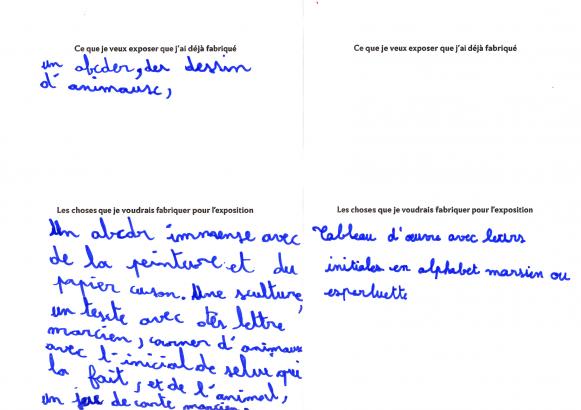 Ce que je veux exposer que j'ai déjà fabriqué
un abcder, des dessin
d'animause,
Les choses que je voudrais fabriquer pour l'exposition
Un abcdr immense avec
de la peinture et du
papier cuson. Une sculture,
un texte avec des lettre
marcien, corner d'animaux
avec l'inicial de selui qui
la fait, et de l'animal,
un jeu de carte marcien.
Ce que je veux exposer que j'ai déjà fabriqué
Les choses que je voudrais fabriquer pour l'exposition
Tableau d'œuvre avec leurs
initiales en alphabet marsien ou
esperluette